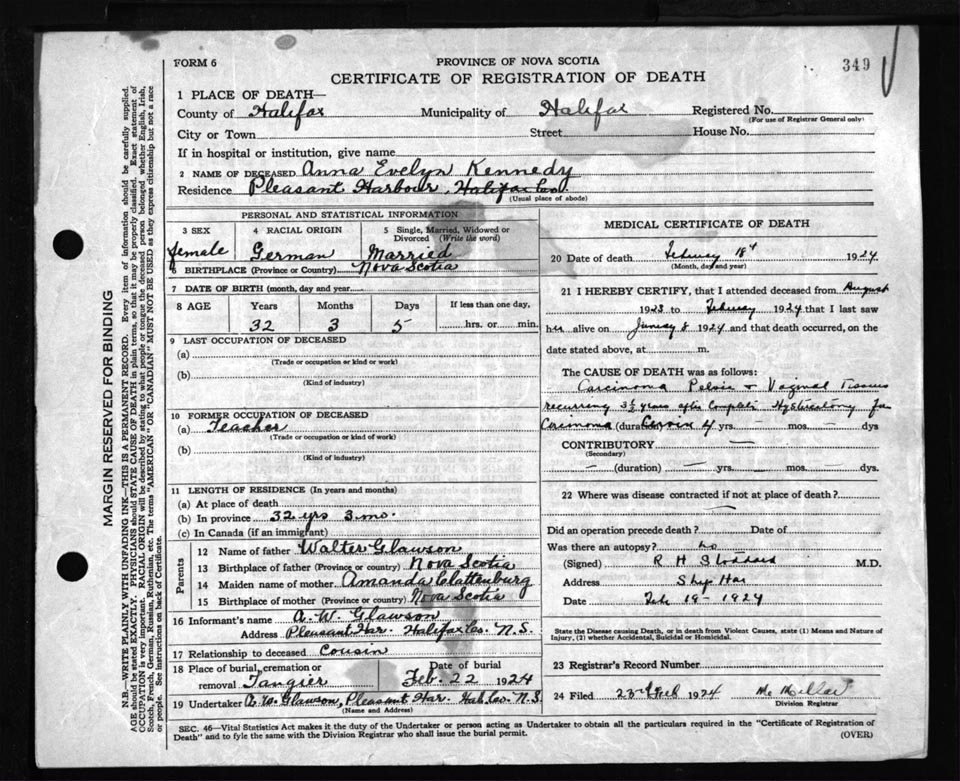 FORM 6
PROVINCE OF NOVA SCOTIA
349
CERTIFICATE OF REGISTRATION OF DEATH
1 PLACE OF DEATH—
County of Halifax Municipality of Halifax Registered No.
(For use of Registrar General only)
City or Town Street House No.
If in hospital or institution, give name
2 NAME OF DECEASED Anna Evelyn Kennedy
Residence Pleasant Harbour, Halifax Co.
(Usual place of abode)
PERSONAL AND STATISTICAL INFORMATION
3 SEX 4 RACIAL ORIGIN 5 Single, Married, Widowed or Divorced (Write the word)
female German Married
6 BIRTHPLACE (Province or Country) Nova Scotia
7 DATE OF BIRTH (month, day and year)
8 AGE Years Months Days If less than one day,
32 3 5 hrs. or min.
9 LAST OCCUPATION OF DECEASED
(a)
(Trade or occupation or kind or work)
(b)
(Kind of industry)
10 FORMER OCCUPATION OF DECEASED
(a) Teacher
(Trade or occupation or kind of work)
(b)
(Kind of industry)
11 LENGTH OF RESIDENCE (In years and months)
(a) At place of death
(b) In province 32 yrs 3 mo.
(c) In Canada (if an immigrant)
Parents
12 Name of father Walter Glawson
13 Birthplace of father (Province or country) Nova Scotia
14 Maiden name of mother Amanda Clattenburg
15 Birthplace of mother (Province or country) Nova Scotia
16 Informant's name A. W. Glawson
Address Pleasant Har. Halifax Co. N.S.
17 Relationship to deceased Cousin
18 Place of burial, cremation or removal Tangier Date of burial Feb. 22 1924
19 Undertaker A. W. Glawson, Pleasant Har. Hal. Co. N.S.
(Name and Address)
MEDICAL CERTIFICATE OF DEATH
20 Date of death February 18th 1924
(Month, day and year)
21 I HEREBY CERTIFY, that I attended deceased from August
1923 to February 1924 that I last saw
her alive on 8 1924 and that death occurred, on the
date stated above, at m.
The CAUSE OF DEATH was as follows:
Carcinoma Pelvic + Vaginal Tissues
recurring 3½ years after Complete Hysterectomy for
Carcinoma (duration) Cervix 4 yrs. — mos. — dys
CONTRIBUTORY —
(Secondary)
— (duration) — yrs. — mos. — dys.
22 Where was disease contracted if not at place of death?
Did an operation precede death? Date of
Was there an autopsy? no
(Signed) R H Stoddard M.D.
Address Ship Har
Date Feb 19 - 1924
State the Disease causing Death, or in death from Violent Causes, state (1) Means and Nature of
Injury, (2) whether Accidental, Suicidal or Homicidal.
23 Registrar's Record Number
24 Filed 23rd Feb 1924
Division Registrar
SEC. 46—Vital Statistics Act makes it the duty of the Undertaker or person acting as Undertaker to obtain all the particulars required in the "Certificate of Registration of
Death" and to fyle the same with the Division Registrar who shall issue the burial permit. (OVER)
MARGIN RESERVED FOR BINDING
N.B.—WRITE PLAINLY WITH UNFADING INK—THIS IS A PERMANENT RECORD. Every item of information should be carefully supplied.
AGE should be stated EXACTLY. PHYSICIANS should STATE CAUSE OF DEATH in plain terms, so that it may be properly classified. Exact statement of
OCCUPATION is very important. RACIAL ORIGIN will be described by stating to what people or tongue the deceased person belonged whether English, Irish,
Scotch, French, German, Russian, Ruthenian, etc. The terms "AMERICAN" or "CANADIAN" MUST NOT BE USED as they express citizenship but not a race
or people. See instructions on back of Certificate.